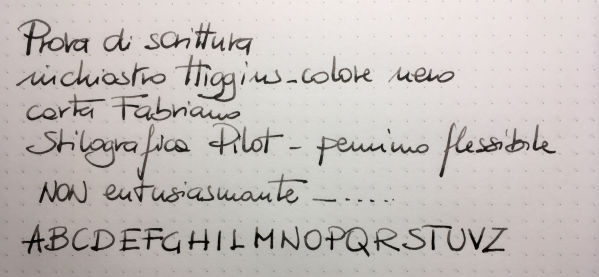 Prova di scrittura
inchiostro Higgins - colore nero
carta Fabriano
Stilografica Pilot - pennino flessibile
NON entusiasmante - .....
ABCDEFGHILMNOPQRSTUVZ